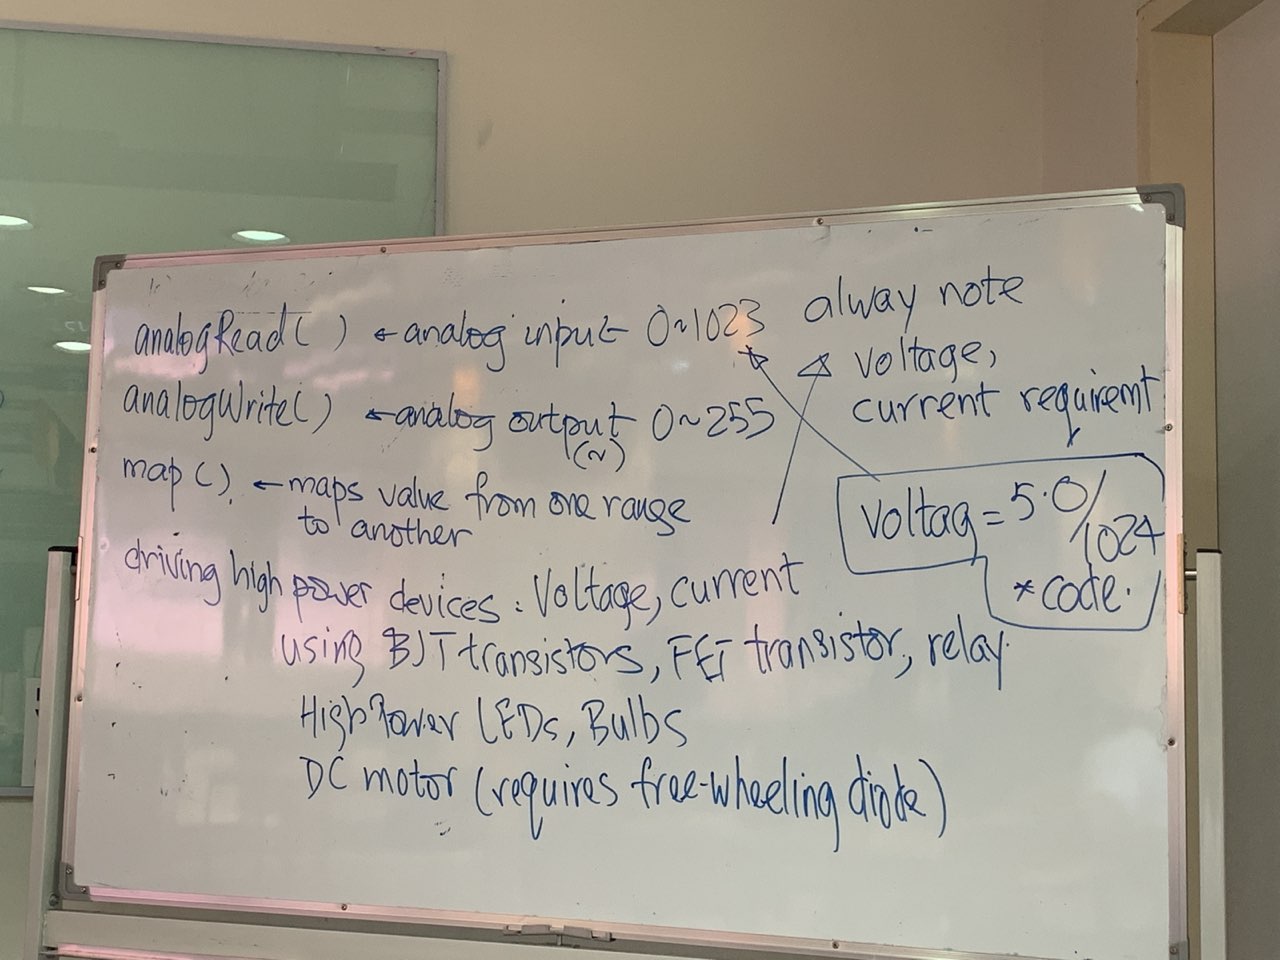 analogRead() ← analog input 0~1023
analogWrite() ← analog output 0~255
(~)
map() ← maps value from one range
to another
driving high power devices: Voltage, current
using BJT transistors, FET transistor, relay.
High Power LEDs, Bulbs
DC motor (requires free-wheeling diode)
alway note
voltage,
current requiremt
Voltag = 5.0/
1024
*code.